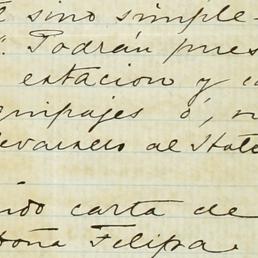 sino simple-
". Podrán pres
estacion y c
quipajes ó, n
levarnos al Hote
ndo carta de
oña Filipa.